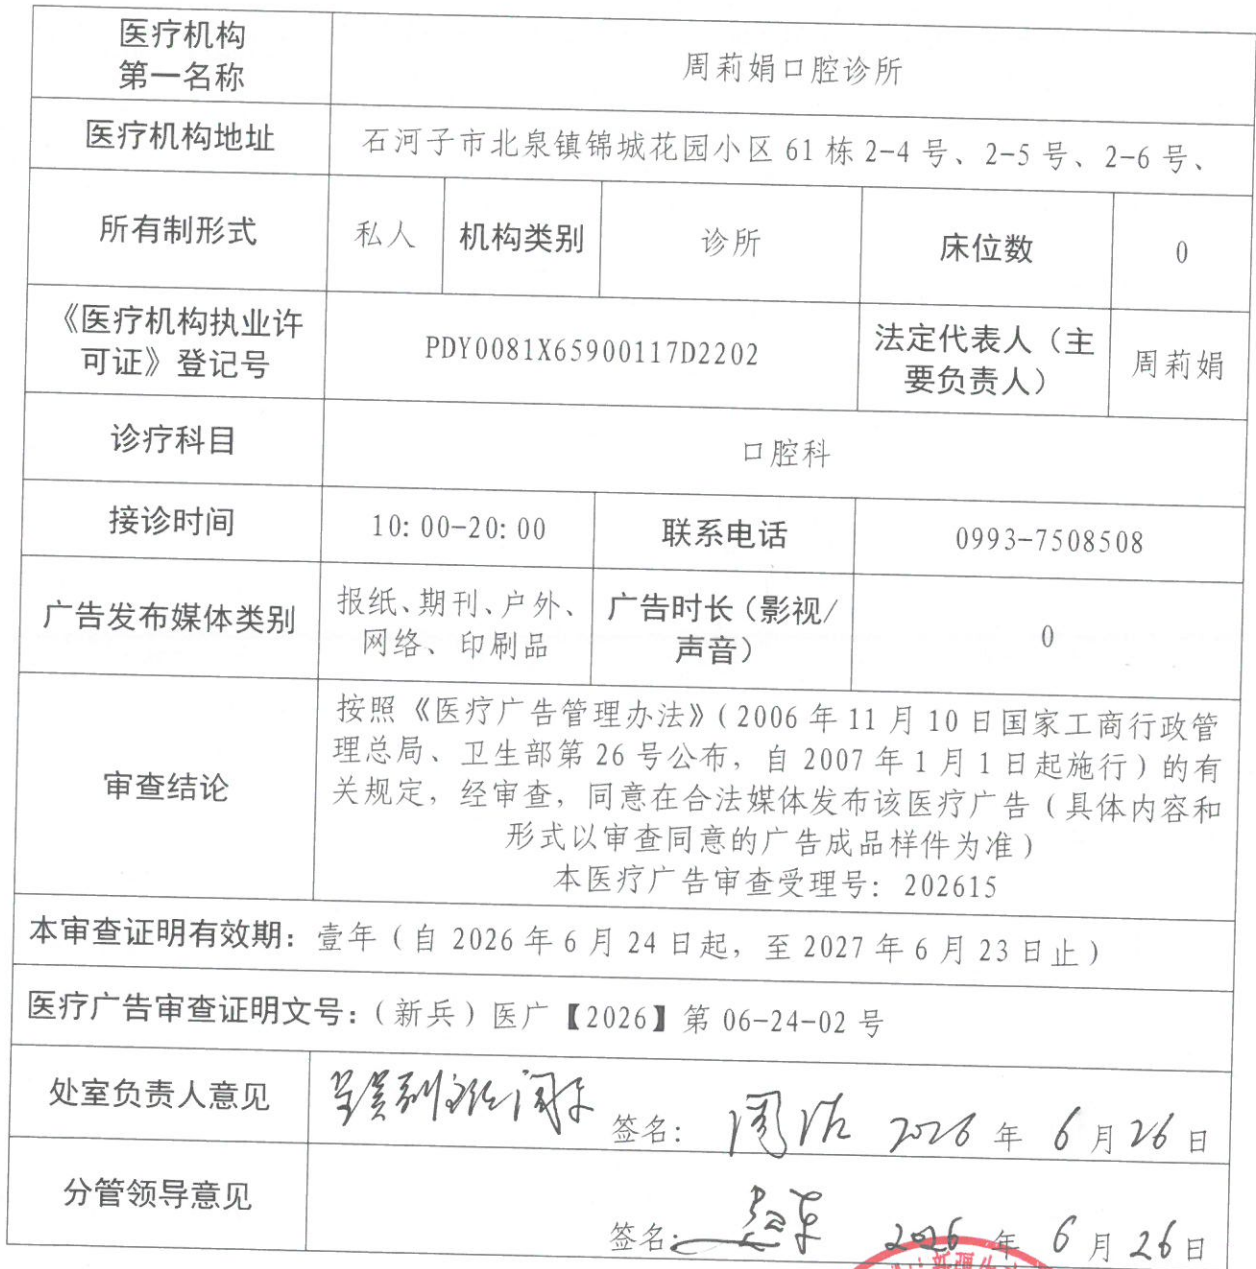 医疗机构
第一名称
周莉娟口腔诊所
医疗机构地址
石河子市北泉镇锦城花园小区 61 栋 2-4 号、2-5 号、2-6 号、
所有制形式
私人
机构类别
诊所
床位数
0
《医疗机构执业许
可证》登记号
PDY0081X65900117D2202
法定代表人（主
要负责人）
周莉娟
诊疗科目
口腔科
接诊时间
10:00-20:00
联系电话
0993-7508508
广告发布媒体类别
报纸、期刊、户外、
网络、印刷品
广告时长（影视/
声音）
0
审查结论
按照《医疗广告管理办法》（2006 年 11 月 10 日国家工商行政管
理总局、卫生部第 26 号公布，自 2007 年 1 月 1 日起施行）的有
关规定，经审查，同意在合法媒体发布该医疗广告（具体内容和
形式以审查同意的广告成品样件为准）
本医疗广告审查受理号：202615
本审查证明有效期：壹年（自 2026 年 6 月 24 日起，至 2027 年 6 月 23 日止）
医疗广告审查证明文号：（新兵）医广【2026】第 06-24-02 号
处室负责人意见
签名： 2026 年 6 月 26 日
分管领导意见
签名： 2026 年 6 月 26 日